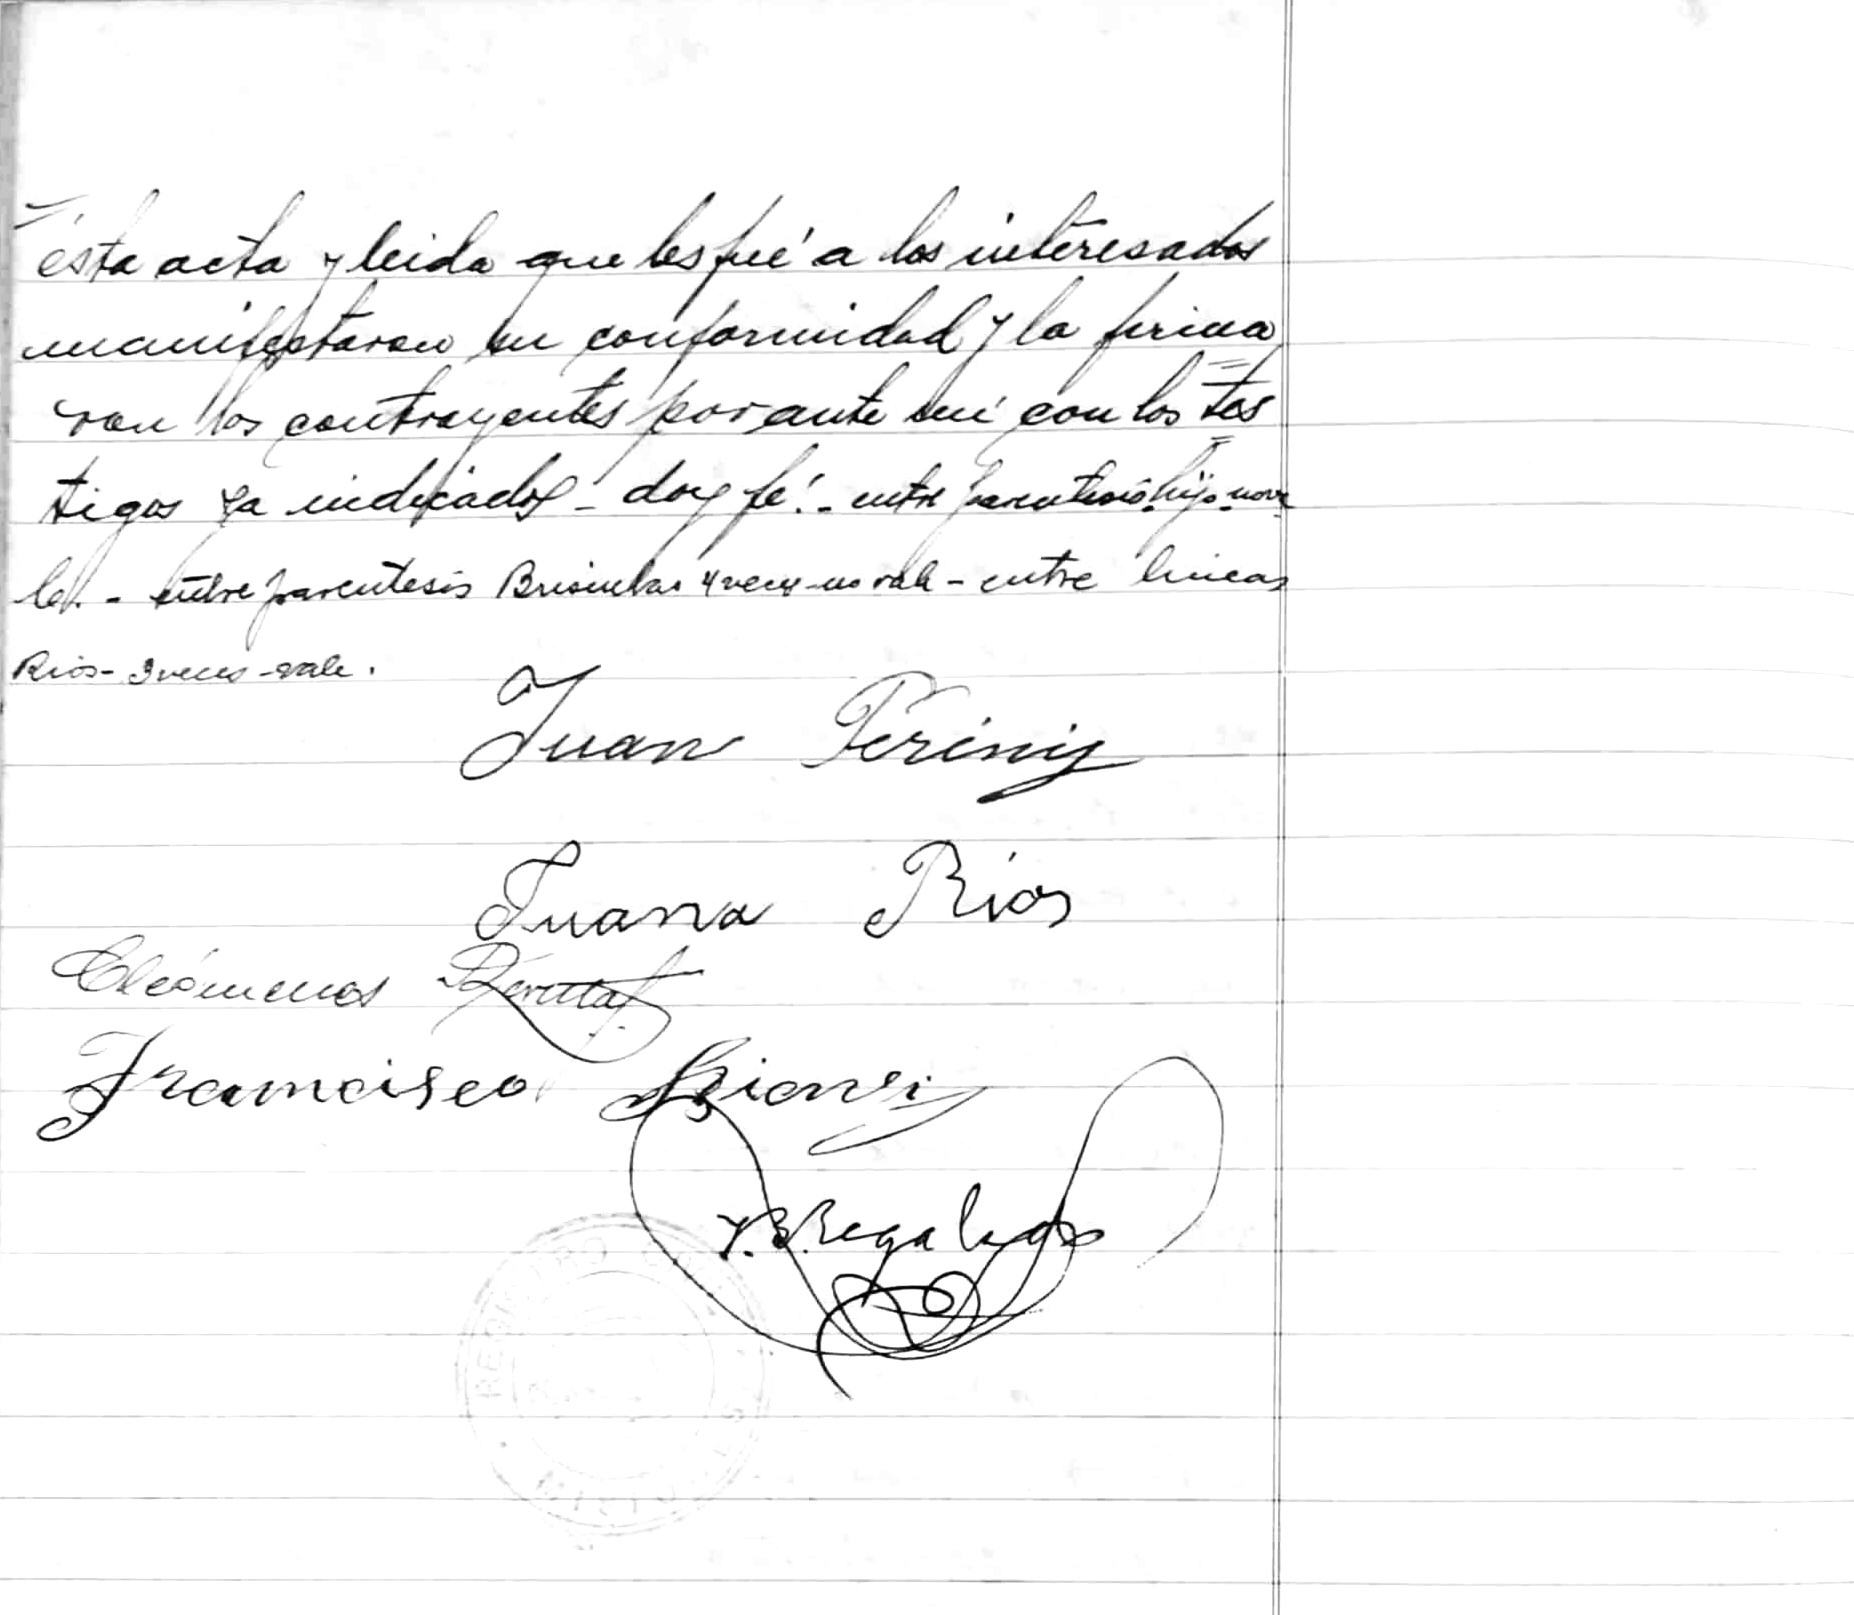 ésta acta y leida que les fué a los interesados
manifestaron su conformidad y la firma
ron los contrayentes por ante mi con los tes
tigos ya indicados - doy fé. - entre parentesis hijo no va
le. - entre parentesis 4 veces - no vale - entre lineas
Rios - 3 veces - vale.
Juan
Juana Rios
Cleómenes
Francisco
Regalado
REGISTRO